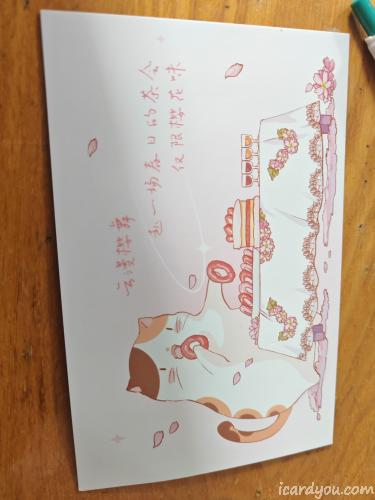 云漫樱舞
赴一场春日的茶会
仅限樱花味
icardyou.com